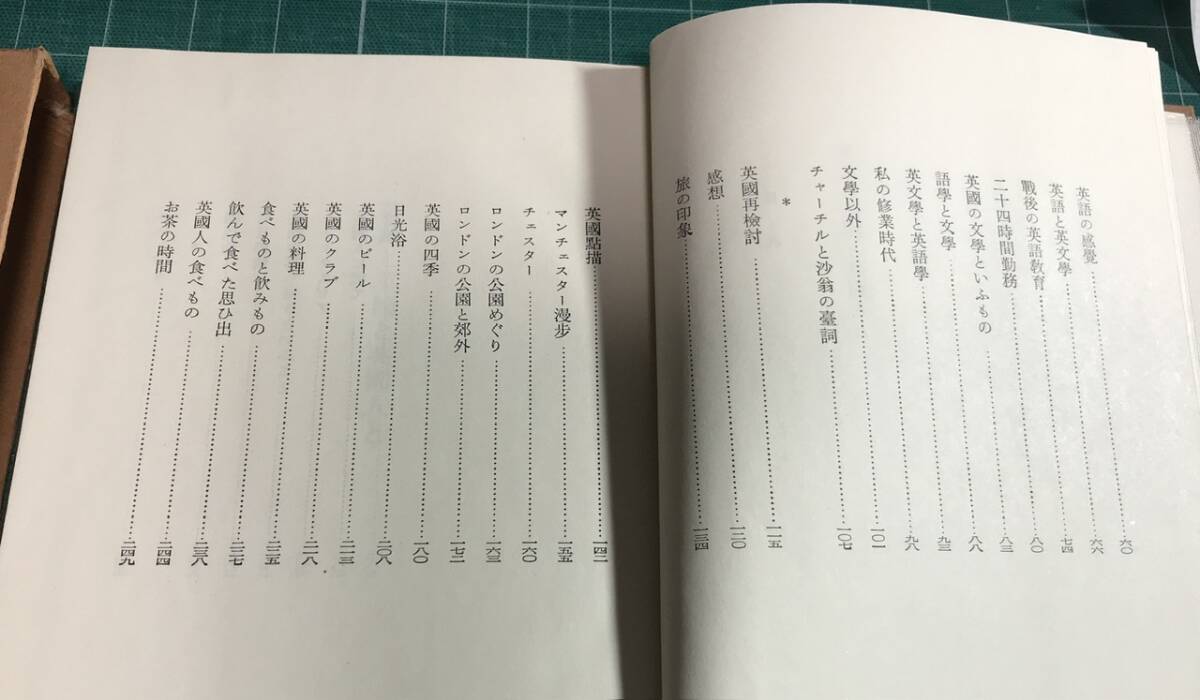 英語の感覺……六〇
英語と英文學……六六
戰後の英語教育……七四
二十四時間勤務……八〇
英國の文學といふもの……八三
語學と文學……八八
英文學と英語學……九三
私の修業時代……九八
文學以外……一〇一
チャーチルと沙翁の臺詞……一〇七
*
英國再檢討……一一五
感想……一二〇
旅の印象……一三四
英國點描……一四二
マンチェスター漫步……一五五
チェスター……一六〇
ロンドンの公園めぐり……一六三
ロンドンの公園と郊外……一七二
英國の四季……一八〇
日光浴……二〇八
英國のビール……二一三
英國のクラブ……二一八
英國の料理……二二五
食べものと飲みもの……二二七
飲んで食べた思ひ出……二三八
英國人の食べもの……二四四
お茶の時間……二四九